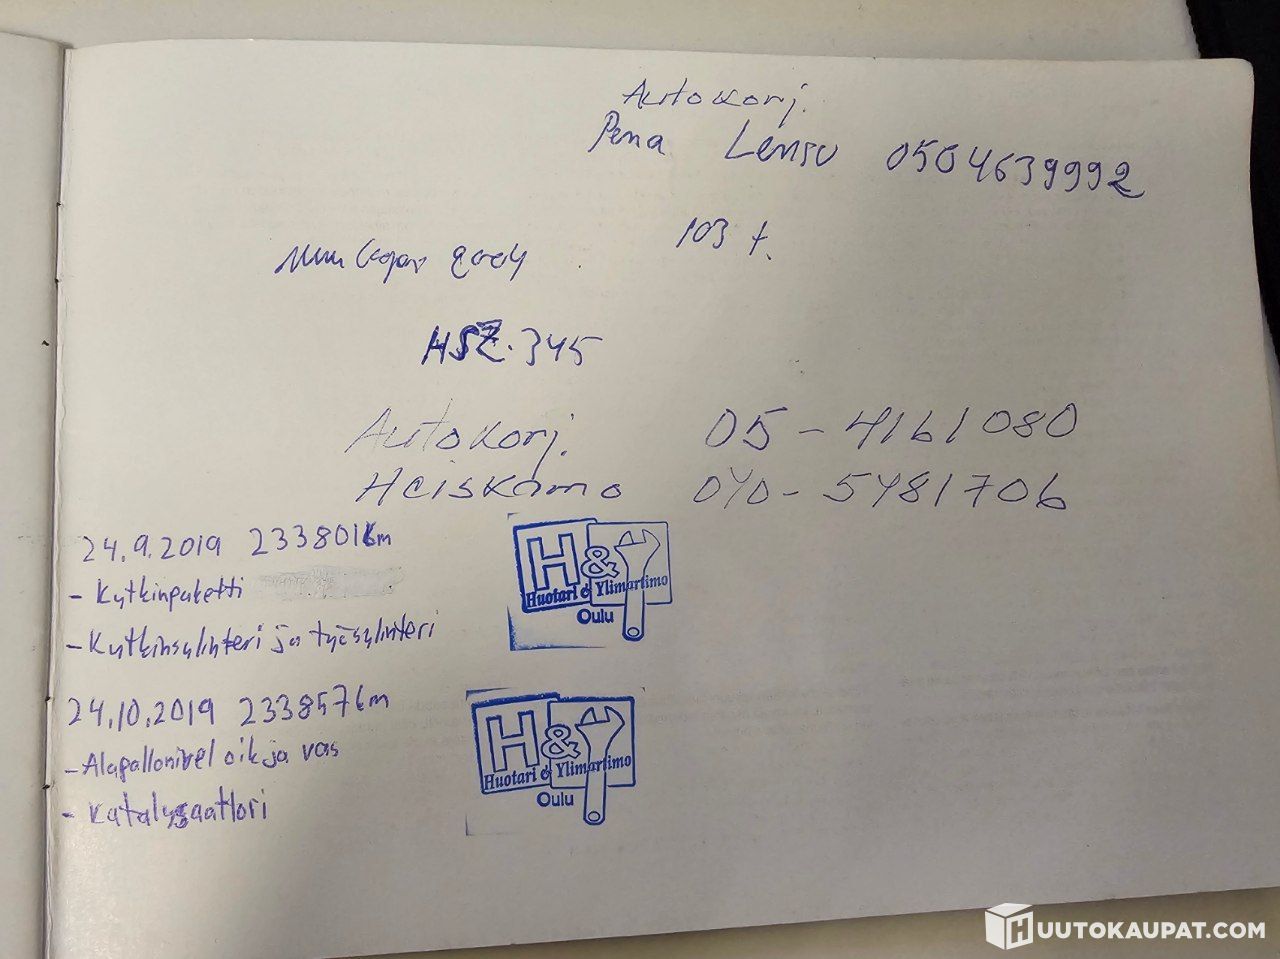 Autokorj.
Pena Lensu 0504639992
103 t.
Mini Cooper
HSZ-345
Autokorj. 05-4161080
Heiskamo 040-5481706
24.9.2019 233801km
- Kytkinpaketti
- Kytkinsylinteri ja työsylinteri
H&
Huotari & Ylimartimo
Oulu
24.10.2019 233857km
- Alapallonivel oik ja vas
- Katalysaattori
H&
Huotari & Ylimartimo
Oulu
HUUTOKAUPAT.COM